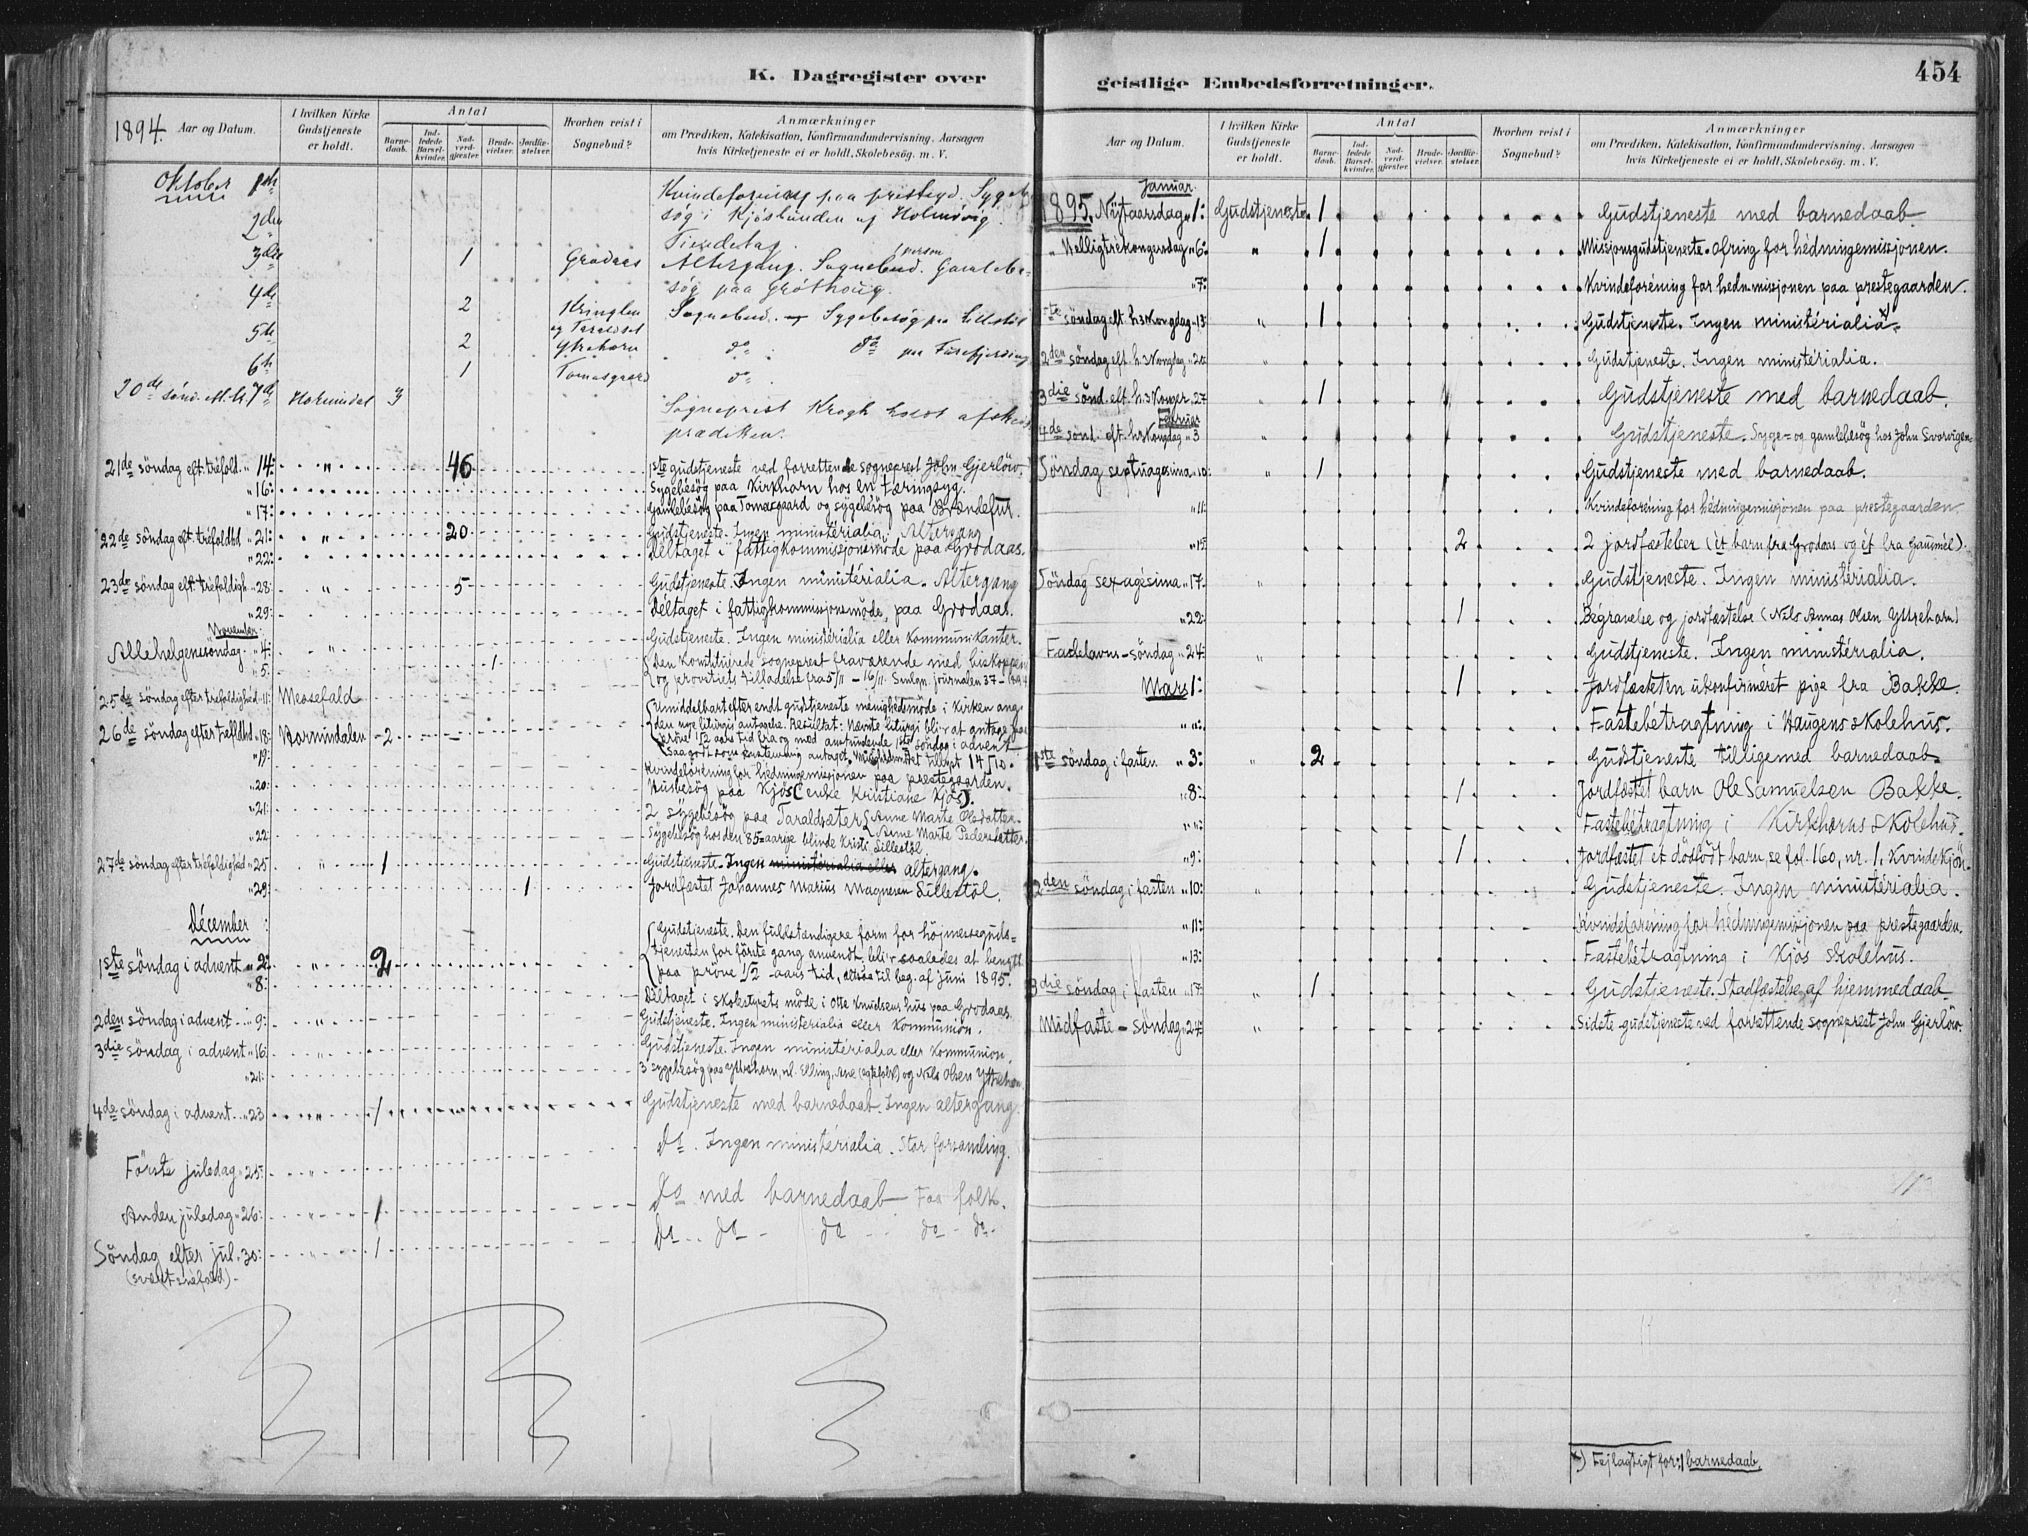 K. Dagregister over
1894. Aar og Datum.
I hvilken Kirke Gudstjeneste er holdt.
Antal
Barnedaab.
Indledede Barselkvinder.
Nadverdgjester.
Brudevielser.
Jordfæstelser.
Hvorhen reist i Sognebud?
Anmærkninger
om Prædiken, Katekisation, Konfirmandundervisning, Aarsagen
hvis Kirketjeneste ei er holdt, Skolebesøg. m. V.
Oktober 1ste Kvindeforening paa pristegd. Sygebe-
søg i Kjøsbunden og Holmövig.
2den Tiendetag.
3die 1 Grodaas Altergang. Sognebud. 1 person. Gamlebe-
søg paa Gróthoug.
4de 2 Kringlen og Taraldset Sognebud. Sygebesøg paa Lillestöl
5te 2 Ytrehorn do do paa
6te 1 Tomasgaard do
20de sönd. e. tr. 7de Hornindal 3 Sogneprest Krogh holdt afskeds-
prædiken.
21de söndag eft. tréfold. " 14: " 46 1ste gudstjeneste ved forrettende sogneprest John Gjerlöw.
" 16: Sygebésög paa Kirkhorn hos en tæringsyg.
" 17: Gamlebésög paa Tomasgaard og sygebésög paa Brændefur.
22de söndag eft. tréfoldhd " 21: " 20 Gudstjeneste. Ingen ministérialia. Altergang
" 22: Déltaget i fattigkommissjonsmöde paa Grodaas.
23de söndag eft. tréfoldigh " 28: " 5 Gudstjeneste. Ingen ministérialia. Altergang
" 29: Déltaget i fattigkommissjonsmöde, paa Grodaas.
November
Allehelgenssöndag " 4: " Gudstjeneste. Ingen ministérialia eller kommunikanter.
" 5: 1 Den konstituerede sogneprest fraværende med biskoppens
og provstiets tilladelse fra 5/11 – 16/11. Smlgn. journalen 37 – 1894
25de söndag efter tréfoldighed " 11: Messefald
26de söndag efter tréfldhd " 18: Hornindalen 2 Umiddelbart efter endt gudstjeneste ménighedsmöde i kirken ang.
den nye liturgis antagelse. Resultat: Nævnte liturgi bliver at antage paa
pröve 1/2 aars tid fra og med anstundende 1ste söndag i advent
" 19: Kvindeforening for hédningemissjonen paa prestegaarden.
" 20: Husbesög paa Kjös (enke Kristiane Kjös).
" 21: 2 sygebésög paa Taraldsæter { Anne Marte Olsdatter
Anne Marte Pedersdatter
" 22: Sygebésög hos den 85-aarige blinde Kristi Lillestöl
27de söndag efter tréfoldighed " 25: " 1 Gudstjeneste. Ingen ministérialia eller altergang.
" 29: 1 Jordfæstet Johannes Marius Magnesen Lillestöl.
Décember
1ste söndag i advent " 2: " 2 Gudstjeneste. Den fuldstændigere form for höjmesseguds-
tjenesten for förste gang anvendt, bliver saaledes at benytte
paa pröve 1/2-aars tid, altsaa til beg. af juni 1895.
" 8: Déltaget i skolestyrets möde i Otte Knudsens hus paa Grodaas.
2den söndag i advent " 9: " Gudstjeneste. Ingen ministerialia eller Kommunion.
3die söndag i advent " 16: " Gudstjeneste. Ingen ministérialia eller Kommunion.
" 21: 3 sygebesög paa Yttrehorn, nl. Elling, Ane (ægtefolk) og Nils Olsen Yttrehorn.
4de söndag i advent " 23 " 1 Gudstjeneste med barnedaab. Ingen altergang.
Förste juledag " 25: " do. Ingen ministérialia. Stor forsamling.
Anden juledag " 26: " 1 do med barnedaab Faa folk.
Söndag efter jul " 30: " 1 do do do do do
geistlige Embedsforretninger.
454
Aar og Datum.
I hvilken Kirke Gudstjeneste er holdt.
Antal
Barnedaab.
Indledede Barselkvinder.
Nadverdgjester.
Brudevielser.
Jordfæstelser.
Hvorhen reist i Sognebud?
Anmærkninger
om Prædiken, Katekisation, Konfirmandundervisning, Aarsagen
hvis Kirketjeneste ei er holdt, Skolebesøg. m. V.
Januar
1895. Nytaarsdag " 1: Gudstjeneste 1 Gudstjeneste med barnedaab
" Helligtrékongersdag " 6: " 1 Missjonsgudstjeneste. Ofring for hédningemissjonen.
" 7: Kvindeforéning for hedn.missjonen paa prestegaarden.
1ste söndag eft. h. 3 Kongdag " 13: " 1 Gudstjeneste. Ingen ministérialia x).
2den söndag eft. h. 3 Kongdag " 20: " Gudstjeneste. Ingen ministérialia.
3die sönd. eft. h. 3 Konger " 27 " 1 Gudstjeneste med barnedaab.
Februar
4de sönd. eft. h. 3 Kongdag " 3 " Gudstjeneste. Syge- og gamlebesög hos John Svorvigen
Söndag septuagesima " 10: " 1 Gudstjeneste med barnedaab.
" 11: Kvindeforéning for hédningemissjonen paa prestegaarden.
" 15: 2 2 jordfæstelser (ét barn fra Grodaas og ét fra Gausmél)
Söndag sexagésima " 17: " Gudstjeneste. Ingen ministérialia.
" 22: 1 Bégravelse og jordfæstelse (Nils Annas Olsen Yttrehorn)
Fastelavns-söndag " 24: " Gudstjeneste. Ingen ministérialia.
Mars 1: 1 Jordfæstet en ukonfirmeret pige fra Bakke.
" " Fastebétragtning i Haugens skolehus.
1ste söndag i fasten " 3: " 2 Gudstjeneste tilligemed barnedaab.
" 8: 1 Jordfæstet barn Ole Samuelsen Bakke.
" " Fastebétragtning i Kirkhorns skolehus.
" 9: 1 Jordfæstet et dödfödt barn, se fol. 160, nr. 1. Kvindekjön
2den söndag i fasten " 10: " Gudstjeneste. Ingen ministérialia.
" 11: Kvindeforéning for hédningemissjonen paa prestegaarden.
" 13: Fastebétragtning i Kjös skolehus.
3die söndag i fasten " 17: " 1 Gudstjeneste. Stadfæstelse af hjemmedaab
Midfaste-söndag " 24: " Sidste gudstjeneste ved forrettende sogneprest John Gjerlöw.
x) Fejlagtigt for: 1 barnedaab.